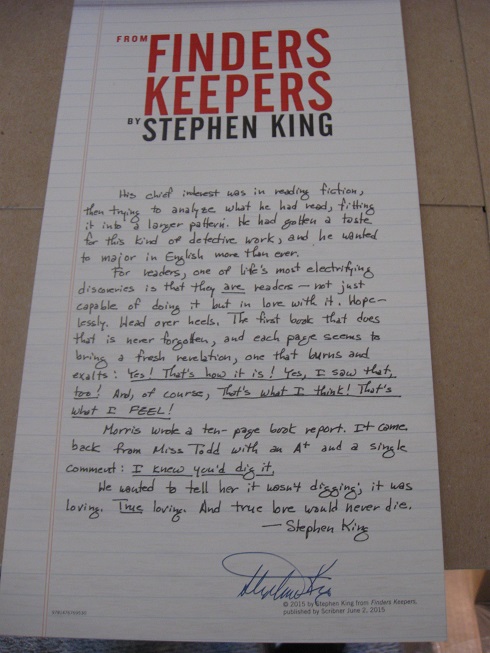 FROM FINDERS
KEEPERS
BY STEPHEN KING
His chief interest was in reading fiction,
then trying to analyze what he had read, fitting
it into a larger pattern. He had gotten a taste
for this kind of detective work, and he wanted
to major in English more than ever.
For readers, one of life's most electrifying
discoveries is that they are readers — not just
capable of doing it but in love with it. Hope-
lessly. Head over heels. The first book that does
that is never forgotten, and each page seems to
bring a fresh revelation, one that burns and
exalts: Yes! That's how it is! Yes, I saw that,
too! And, of course, That's what I think! That's
what I FEEL!
Morris wrote a ten-page book report. It came
back from Miss Todd with an A+ and a single
comment: I knew you'd dig it.
He wanted to tell her it wasn't digging; it was
loving. True loving. And true love would never die.
— Stephen King
Stephen King
© 2015 by Stephen King from Finders Keepers,
published by Scribner June 2, 2015